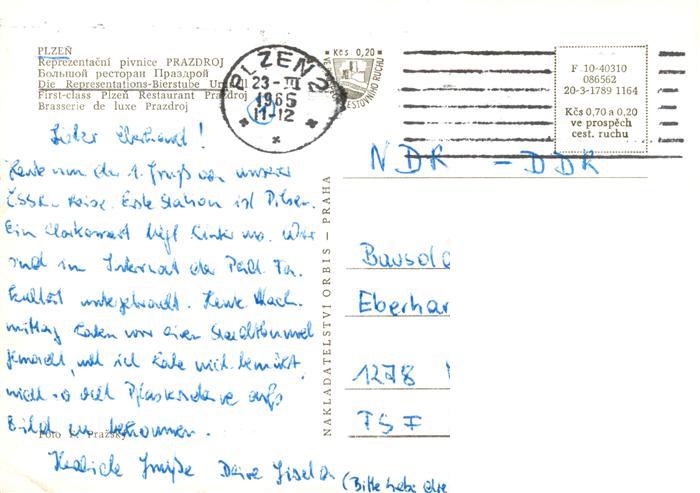 PLZEŇ
Reprezentační pivnice PRAZDROJ
Большой ресторан Праздрой
Die Representations-Bierstube
First-class Plzeň Restaurant Prazdroj
Brasserie de luxe Prazdroj
Kčs 0,20
CESTOVNÍHO RUCHU
PLZEŇ 2
23-III
1966
11-12
F 10-40310
086562
20-3-1789 1164
Kčs 0,70 a 0,20
ve prospěch
cest. ruchu
NDR - DDR
Lieber Eberhard!
Heute nun der 1. Gruß von unserer
ČSSR-Reise. Erste Station ist Pilsen.
Ein liegt hinter uns. Wir
sind im Internat der Päd. Fa-
kultät untergebracht. Heute Nach-
mittag haben wir einen Stadtbummel
gemacht, und ich habe mich bemüht,
nicht so viel aufs
Bild zu bekommen.
Herzliche Grüße Deine Gisela
(Bitte hebe die
NAKLADATELSTVÍ ORBIS – PRAHA
Eberhar
1278
Foto Pražský